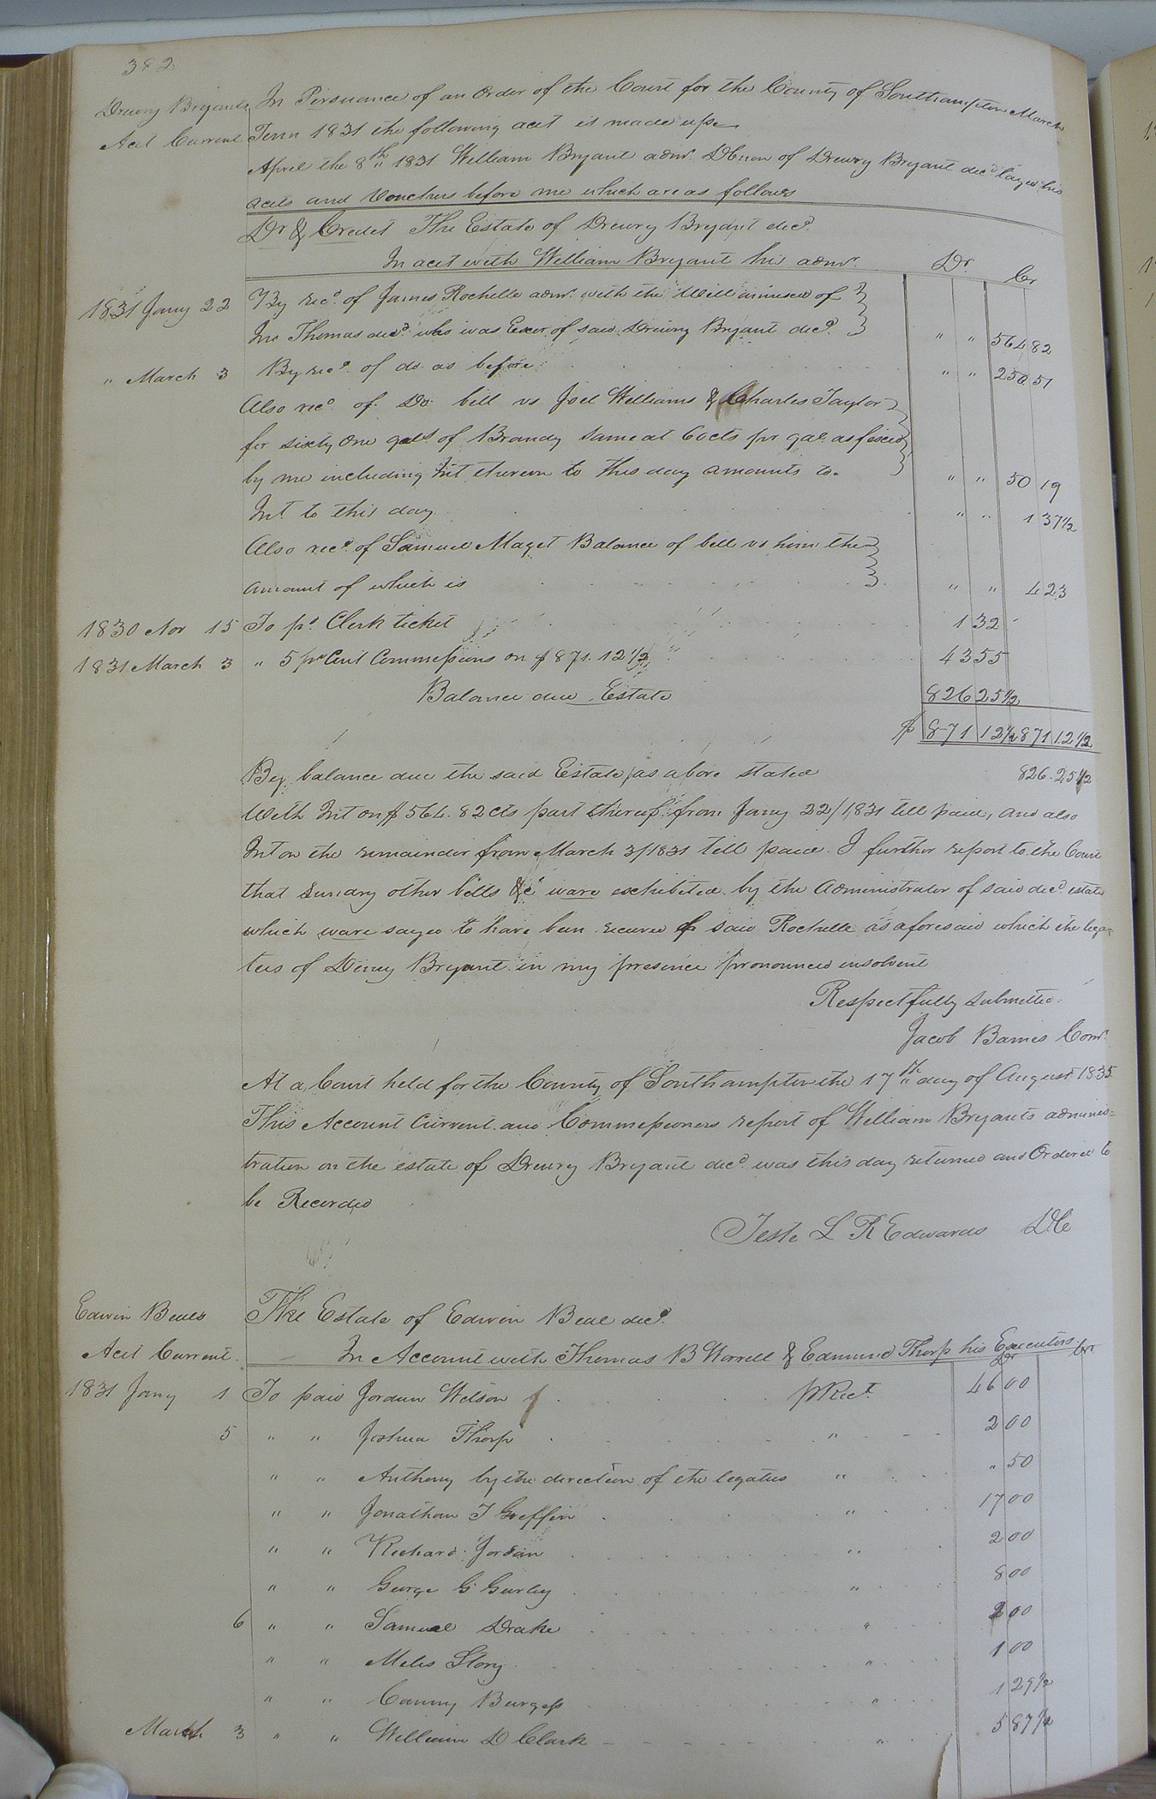 382
Drewry Bryants In Persuance of an Order of the Court for the County of Southampton March
Acct Current Term 1831 the following acct is made up
April the 8th 1831 William Bryant admr. Dbnon of Drewry Bryant decd. layed his
accts and Vouchers before me which are as follows
Dr & Credit The Estate of Drewry Bryant decd.
In acct with William Bryant his admr. Dr Cr
1831 Jany 22 By recd. of James Rochelle admr. with the Will annexed of
Thomas decd. who was Exor of said Drewry Bryant decd. " " 564 82
" March 3 By recd. of do. as before " " 250 51
Also recd. of Do bill vs Joel Williams & Charles Taylor
for sixty One gals of Brandy same at 60 cts pr gal. as fixed
by me including Int thereon to this day amounts to " " 50 19
Int. to this day " " 1 37½
Also recd. of Samuel Maget Balance of bill vs him the
amount of which is " " 4 23
1830 Nov 15 To pd. Clerk ticket 1 32
1831 March 3 " 5 pr Cent Commissions on $871.12½ 43 55
Balance due Estate 826 25½
$ 871 12½ 871 12½
By balance due the said Estate as above stated 826.25½
With Int on $564.82 cts part thereof from Jany 22/1831 till paid, and also
Int on the remainder from March 3/1831 till paid. I further report to the Court
that sundry other bills &c ware exhibited by the Administrator of said decd. estate
which ware sayed to have been received of said Rochelle as aforesaid which the lega-
tees of Drewry Bryant in my presence pronounced insolvent
Respectfully submitted.
Jacob Barnes Comr.
At a Court held for the County of Southampton the 17th day of August 1835
This Account Current and Commissioners report of William Bryants adminis=
tration on the estate of Drewry Bryant decd. was this day returned and Ordered to
be Recorded
Teste L R Edwards DC
Edwin Beals The Estate of Edwin Beal decd.
Acct Current. In Account with Thomas B Worrell & Edmund Thorp his Executors Dr Cr
1831 Jany 1 To paid Jordan Wilson pr Rect. 46 00
5 " " Joshua Thorp " 2 00
" " Anthony by the direction of the legatees " " 50
" " Jonathan T Griffin " 17 00
" " Richard Jordan " 2 00
" " George G Gurley " 8 00
6 " " Samuel Drake " 2 00
" " Miles Story " 1 00
" " Burgess " 1 29½
March 3 " " William D Clark " 5 87½